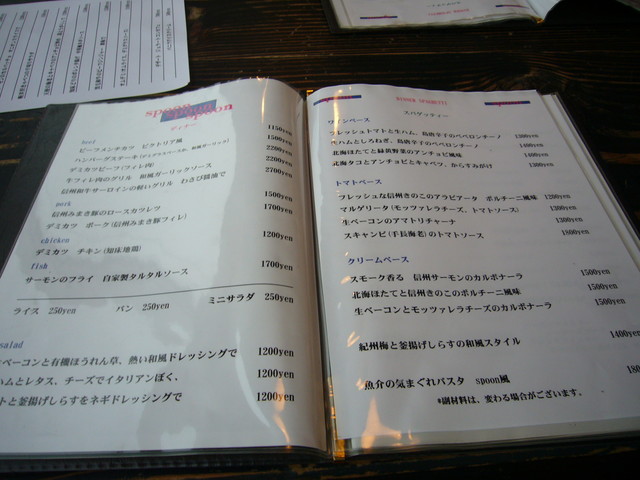 spoon
spoon
spoon
ディナー
beef
ビーフメンチカツ ビクトリア風 1150yen
ハンバーグステーキ 1500yen
デミカツビーフ(フィレ肉) 2200yen
牛フィレ肉のグリル 和風ガーリックソース 2200yen
信州和牛サーロインの軽いグリル わさび醤油で 2700yen
pork
信州みまき豚のロースカツレツ 1500yen
デミカツ ポーク(信州みまき豚フィレ) 1700yen
chicken
デミカツ チキン(知床地鶏) 1200yen
fish
サーモンのフライ 自家製タルタルソース 1700yen
ライス 250yen パン 250yen ミニサラダ 250yen
salad
ベーコンと有機ほうれん草、熱い和風ドレッシングで 1200yen
ハムとレタス、チーズでイタリアンぽく、 1200yen
トと釜揚げしらすをネギドレッシングで 1200yen
DINNER SPAGHETTI
スパゲッティー
ワインベース
フレッシュトマトと生ハム、鳥唐辛子のペペロンチーノ 1300yen
生ハムとしろねぎ、鳥唐辛子のペペロンチーノ 1400yen
北海ほたてと緑黄野菜のアンチョビ風味 1400yen
北海タコとアンチョビとキャベツ、からすみがけ 1300yen
トマトベース
フレッシュな信州きのこのアラビアータ ポルチーニ風味 1200yen
マルゲリータ(モッツァレラチーズ、トマトソース) 1300yen
生ベーコンのアマトリチャーナ 1300yen
スキャンピ(手長海老)のトマトソース 1800yen
クリームベース
スモーク香る 信州サーモンのカルボナーラ 1500yen
北海ほたてと信州きのこのポルチーニ風味 1500yen
生ベーコンとモッツァレラチーズのカルボナーラ 1500yen
紀州梅と釜揚げしらすの和風スタイル 1400yen
魚介の気まぐれパスタ spoon風 180
*副材料は、変わる場合がございます。